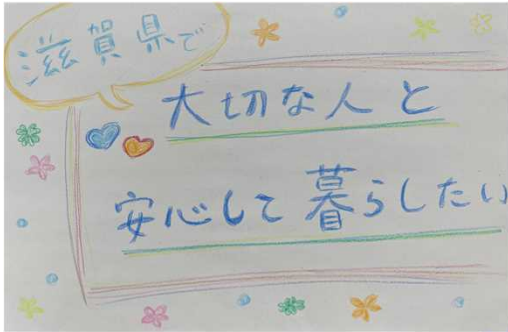 滋賀県で
大切な人と
安心して暮らしたい